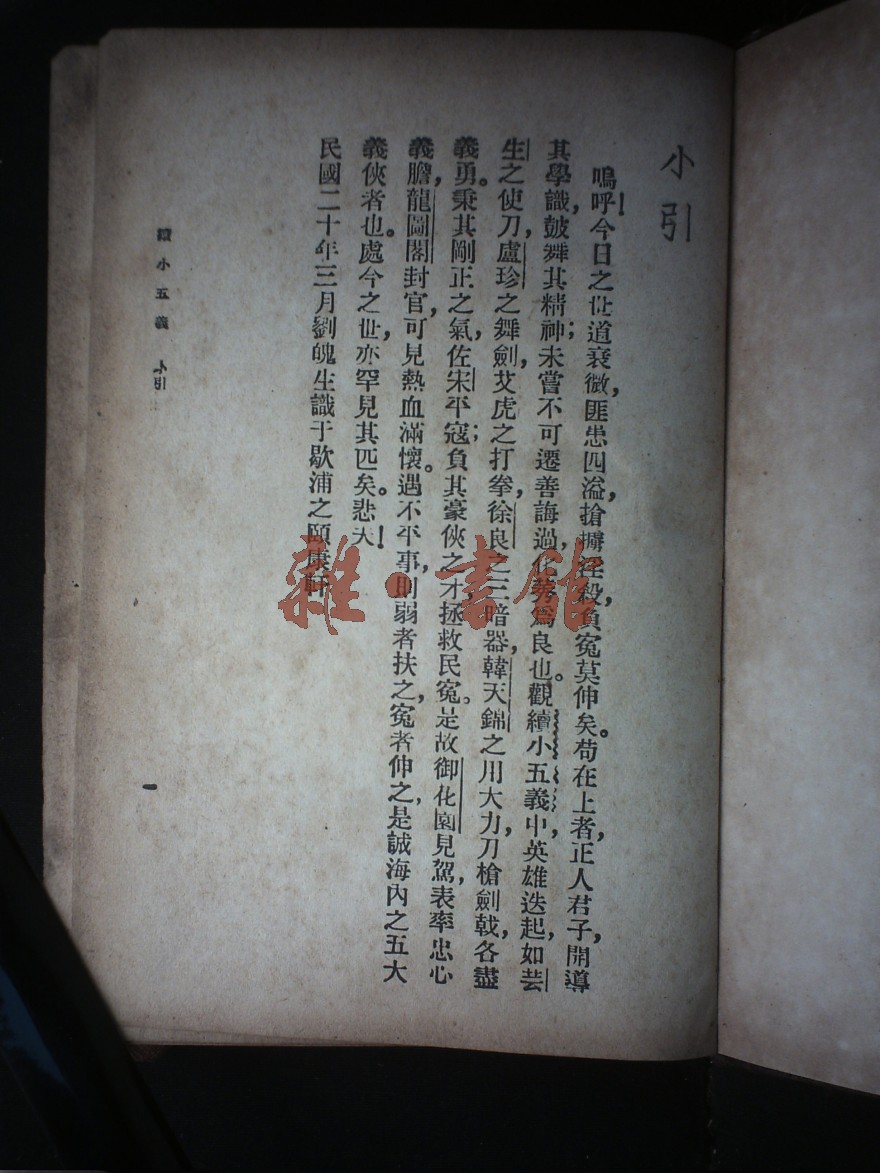 小引
嗚呼!今日之世道衰微,匪患四溢,搶擄淫殺,負冤莫伸矣。苟在上者,正人君子,開導
其學識,皷舞其精神;未嘗不可遷善誨過,化莠爲良也。觀續小五義中,英雄迭起,如芸
生之使刀,盧珍之舞劍,艾虎之打拳,徐良之三暗器,韓天錦之用大力,刀槍劍戟,各盡
義勇。秉其剛正之氣,佐宋平寇;負其豪俠之才,拯救民冤。是故御花園見駕,表率忠心
義膽,龍圖閣封官,可見熱血滿懷。遇不平事,則弱者扶之,冤者伸之,是誠海內之五大
義俠者也。處今之世,亦罕見其匹矣。悲夫!
民國二十年三月劉魄生識于歇浦之頤康軒
續小五義 小引
一
雜·書館